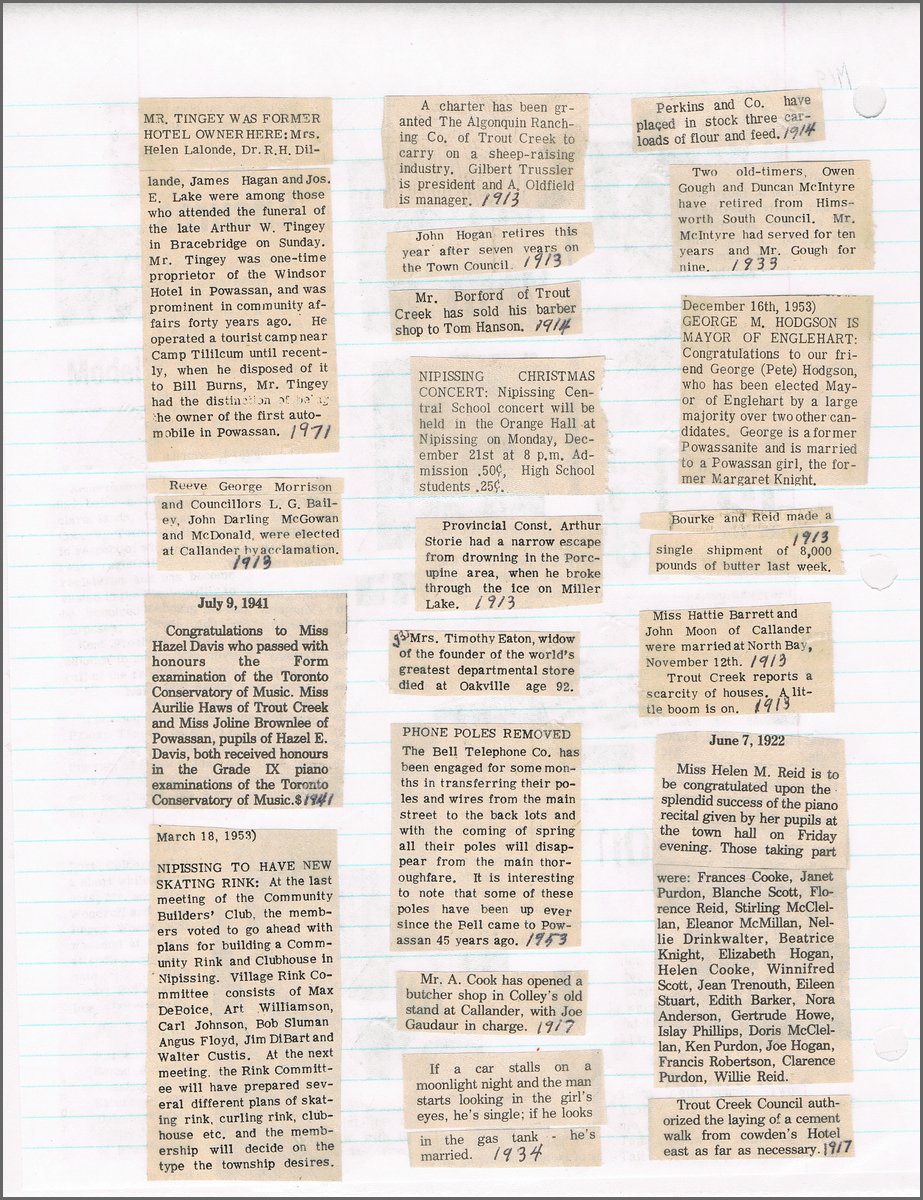 MR. TINGEY WAS FORMER
HOTEL OWNER HERE: Mrs.
Helen Lalonde, Dr. R.H. Dil-
lande, James Hagan and Jos.
E. Lake were among those
who attended the funeral of
the late Arthur W. Tingey
in Bracebridge on Sunday.
Mr. Tingey was one-time
proprietor of the Windsor
Hotel in Powassan, and was
prominent in community af-
fairs forty years ago. He
operated a tourist camp near
Camp Tillicum until recent-
ly, when he disposed of it
to Bill Burns, Mr. Tingey
had the distinction of being
the owner of the first auto-
mobile in Powassan. 1971
Reeve George Morrison
and Councillors L. G. Bail-
ey, John Darling McGowan
and McDonald, were elected
at Callander by acclamation.
1913
July 9, 1941
Congratulations to Miss
Hazel Davis who passed with
honours the Form
examination of the Toronto
Conservatory of Music. Miss
Aurilie Haws of Trout Creek
and Miss Joline Brownlee of
Powassan, pupils of Hazel E.
Davis, both received honours
in the Grade IX piano
examinations of the Toronto
Conservatory of Music.$1941
March 18, 1953)
NIPISSING TO HAVE NEW
SKATING RINK: At the last
meeting of the Community
Builders' Club, the memb-
ers voted to go ahead with
plans for building a Comm-
unity Rink and Clubhouse in
Nipissing. Village Rink Co-
mmittee consists of Max
DeBoice, Art Williamson,
Carl Johnson, Bob Sluman
Angus Floyd, Jim DiBart and
Walter Custis. At the next
meeting, the Rink Committ-
ee will have prepared sev-
eral different plans of skat-
ing rink, curling rink, club-
house etc. and the memb-
ership will decide on the
type the township desires.
A charter has been gr-
anted The Algonquin Ranch-
ing Co. of Trout Creek to
carry on a sheep-raising
industry. Gilbert Trussler
is president and A. Oldfield
is manager. 1913
John Hogan retires this
year after seven years on
the Town Council. 1913
Mr. Borford of Trout
Creek has sold his barber
shop to Tom Hanson. 1914
NIPISSING CHRISTMAS
CONCERT: Nipissing Cen-
tral School concert will be
held in the Orange Hall at
Nipissing on Monday, Dec-
ember 21st at 8 p.m. Ad-
mission .50¢, High School
students .25¢.
Provincial Const. Arthur
Storie had a narrow escape
from drowning in the Porc-
upine area, when he broke
through the ice on Miller
Lake. 1913
Mrs. Timothy Eaton, widow
of the founder of the world's
greatest departmental store
died at Oakville age 92.
PHONE POLES REMOVED
The Bell Telephone Co. has
been engaged for some mon-
ths in transferring their po-
les and wires from the main
street to the back lots and
with the coming of spring
all their poles will disap-
pear from the main thor-
oughfare. It is interesting
to note that some of these
poles have been up ever
since the Bell came to Pow-
assan 45 years ago. 1953
Mr. A. Cook has opened a
butcher shop in Colley's old
stand at Callander, with Joe
Gaudaur in charge. 1917
If a car stalls on a
moonlight night and the man
starts looking in the girl's
eyes, he's single; if he looks
in the gas tank - he's
married. 1934
Perkins and Co. have
placed in stock three car-
loads of flour and feed. 1914
Two old-timers, Owen
Gough and Duncan McIntyre
have retired from Hims-
worth South Council. Mr.
McIntyre had served for ten
years and Mr. Gough for
nine. 1933
December 16th, 1953)
GEORGE M. HODGSON IS
MAYOR OF ENGLEHART:
Congratulations to our fri-
end George (Pete) Hodgson,
who has been elected May-
or of Englehart by a large
majority over two other can-
didates. George is a former
Powassanite and is married
to a Powassan girl, the for-
mer Margaret Knight.
Bourke and Reid made a
1913
single shipment of 8,000
pounds of butter last week.
Miss Hattie Barrett and
John Moon of Callander
were married at North Bay,
November 12th. 1913
Trout Creek reports a
scarcity of houses. A lit-
tle boom is on. 1913
June 7, 1922
Miss Helen M. Reid is to
be congratulated upon the
splendid success of the piano
recital given by her pupils at
the town hall on Friday
evening. Those taking part
were: Frances Cooke, Janet
Purdon, Blanche Scott, Flo-
rence Reid, Stirling McClel-
lan, Eleanor McMillan, Nel-
lie Drinkwalter, Beatrice
Knight, Elizabeth Hogan,
Helen Cooke, Winnifred
Scott, Jean Trenouth, Eileen
Stuart, Edith Barker, Nora
Anderson, Gertrude Howe,
Islay Phillips, Doris McClel-
lan, Ken Purdon, Joe Hogan,
Francis Robertson, Clarence
Purdon, Willie Reid.
Trout Creek Council auth-
orized the laying of a cement
walk from cowden's Hotel
east as far as necessary. 1917